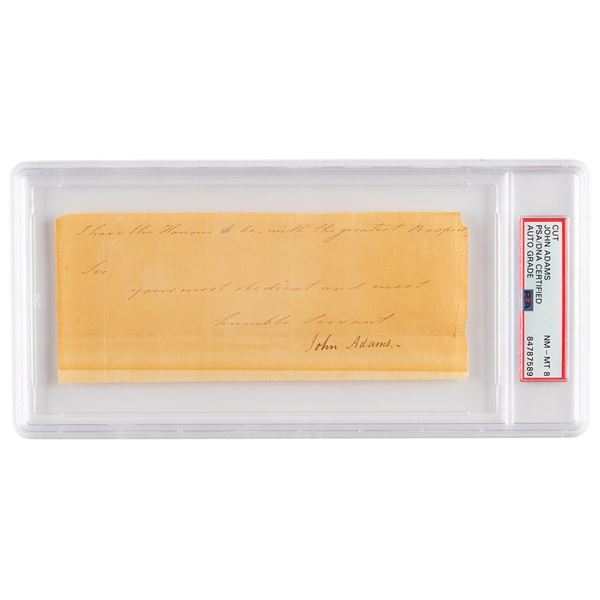 I have the Honour to be, with the greatest Respect
Sir,
your most obedient and most
humble Servant.
John Adams.-
CUT
JOHN ADAMS
PSA/DNA CERTIFIED
AUTO GRADE
NM - MT 8
PSA
84787589